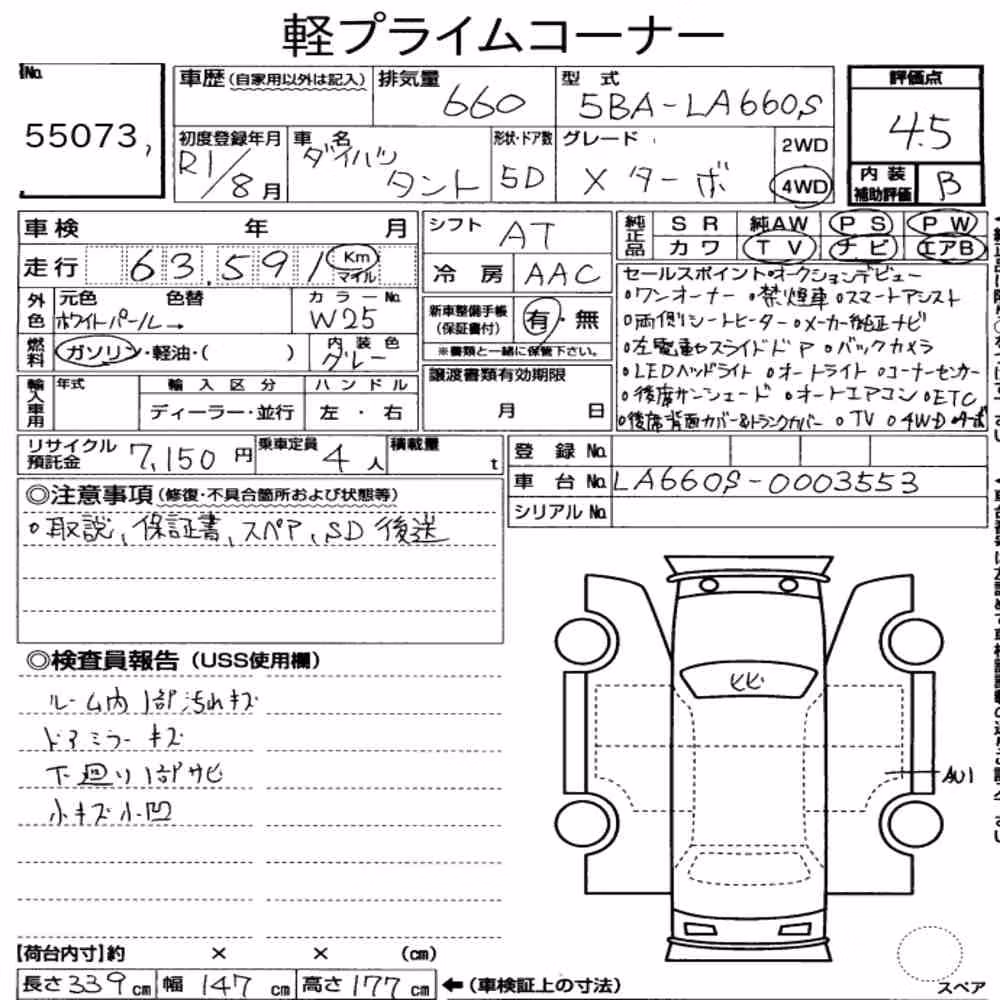 軽プライムコーナー
No.
55073,
車歴 (自家用以外は記入)
排気量
660
型式
5BA-LA660S
評価点
4.5
初度登録年月
R1/8月
車名
ダイハツ
タント
形状・ドア数
5D
グレード
X ターボ
2WD
4WD
内装
補助評価
B
車検 年 月
走行 63,591 Km
マイル
シフト AT
冷房 AAC
純正品
SR 純AW PS PW
カワ TV チビ エアB
外色
元色 色替
ホワイトパール→
カラーNo.
W25
燃料
ガソリン・軽油・( )
内装色
グレー
新車整備手帳
(保証書付)
有・無
※書類と一緒に保管下さい。
セールスポイント・オークションデビュー
○ワンオーナー ○禁煙車 ○スマートアシスト
○両側シートヒーター ○メーカー純正ナビ
○左電動スライドドア ○バックカメラ
○LEDヘッドライト ○オートライト ○コーナーセンサー
○後席サンシェード ○オートエアコン ○ETC
○後席背面カバー&トランクカバー ○TV ○4WD ○ターボ
輸入車用
年式
輸入区分
ディーラー・並行
ハンドル
左・右
譲渡書類有効期限
月 日
リサイクル
預託金
7,150円
乗車定員
4人
積載量
t
登録No.
車台No. LA660S-0003553
シリアルNo.
◎注意事項(修復・不具合箇所および状態等)
○取説、保証書、スペア、SD後送
◎検査員報告(USS使用欄)
ルーム内1部汚れキズ
ドアミラーキズ
下廻り1部サビ
小キズ小凹
ヒビ
AU1
【荷台内寸】約 × × (cm)
長さ339cm 幅147cm 高さ177cm ←(車検証上の寸法)
スペア